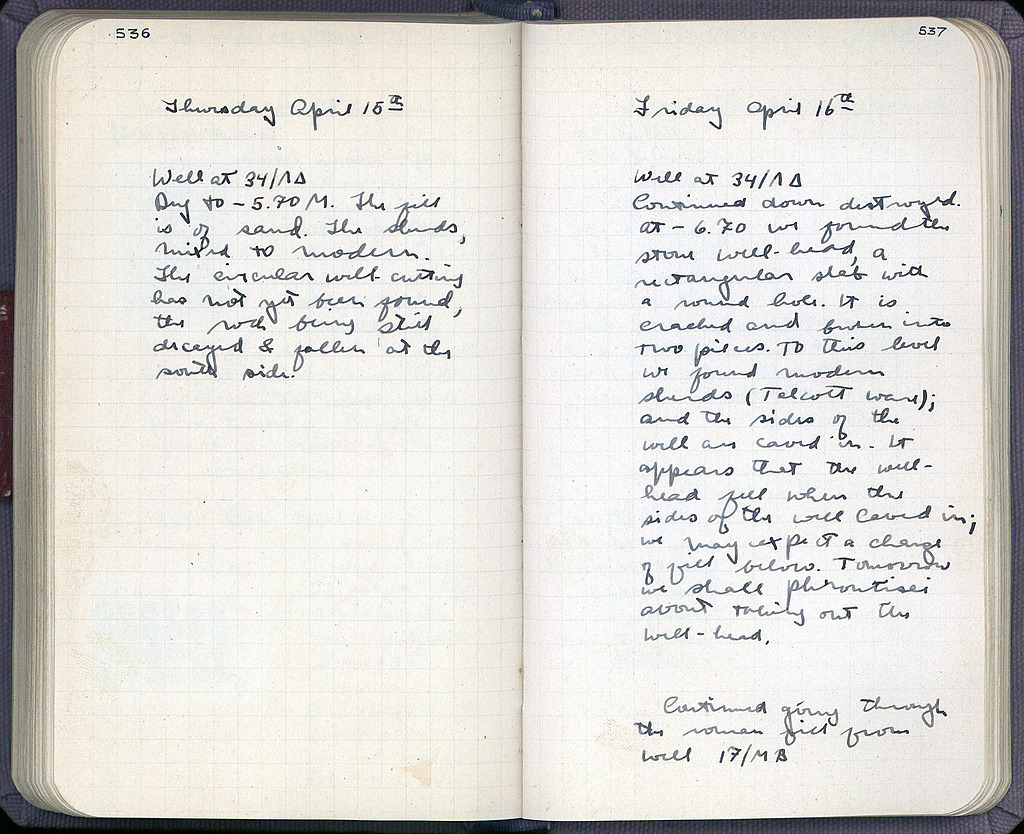 536
Thursday April 15th
Well at 34/ΛΔ
Dug to -5.70 M. The fill
is of sand. The sherds,
mixed to modern.
The circular well cutting
has not yet been found,
the rock being still
decayed & fallen at the
south side.
537
Friday April 16th
Well at 34/ΛΔ
Continued down destroyed.
At -6.70 we found the
stone well-head, a
rectangular slab with
a round hole. It is
cracked and broken into
two pieces. To this level
we found modern
sherds (Talcott ware);
and the sides of the
well are caved in. It
appears that the well-
head fell when the
sides of the well caved in;
we may expect a change
of fill below. Tomorrow
we shall phrontisei
about taking out the
well-head.
Continued going through
the roman fill from
well 17/MB